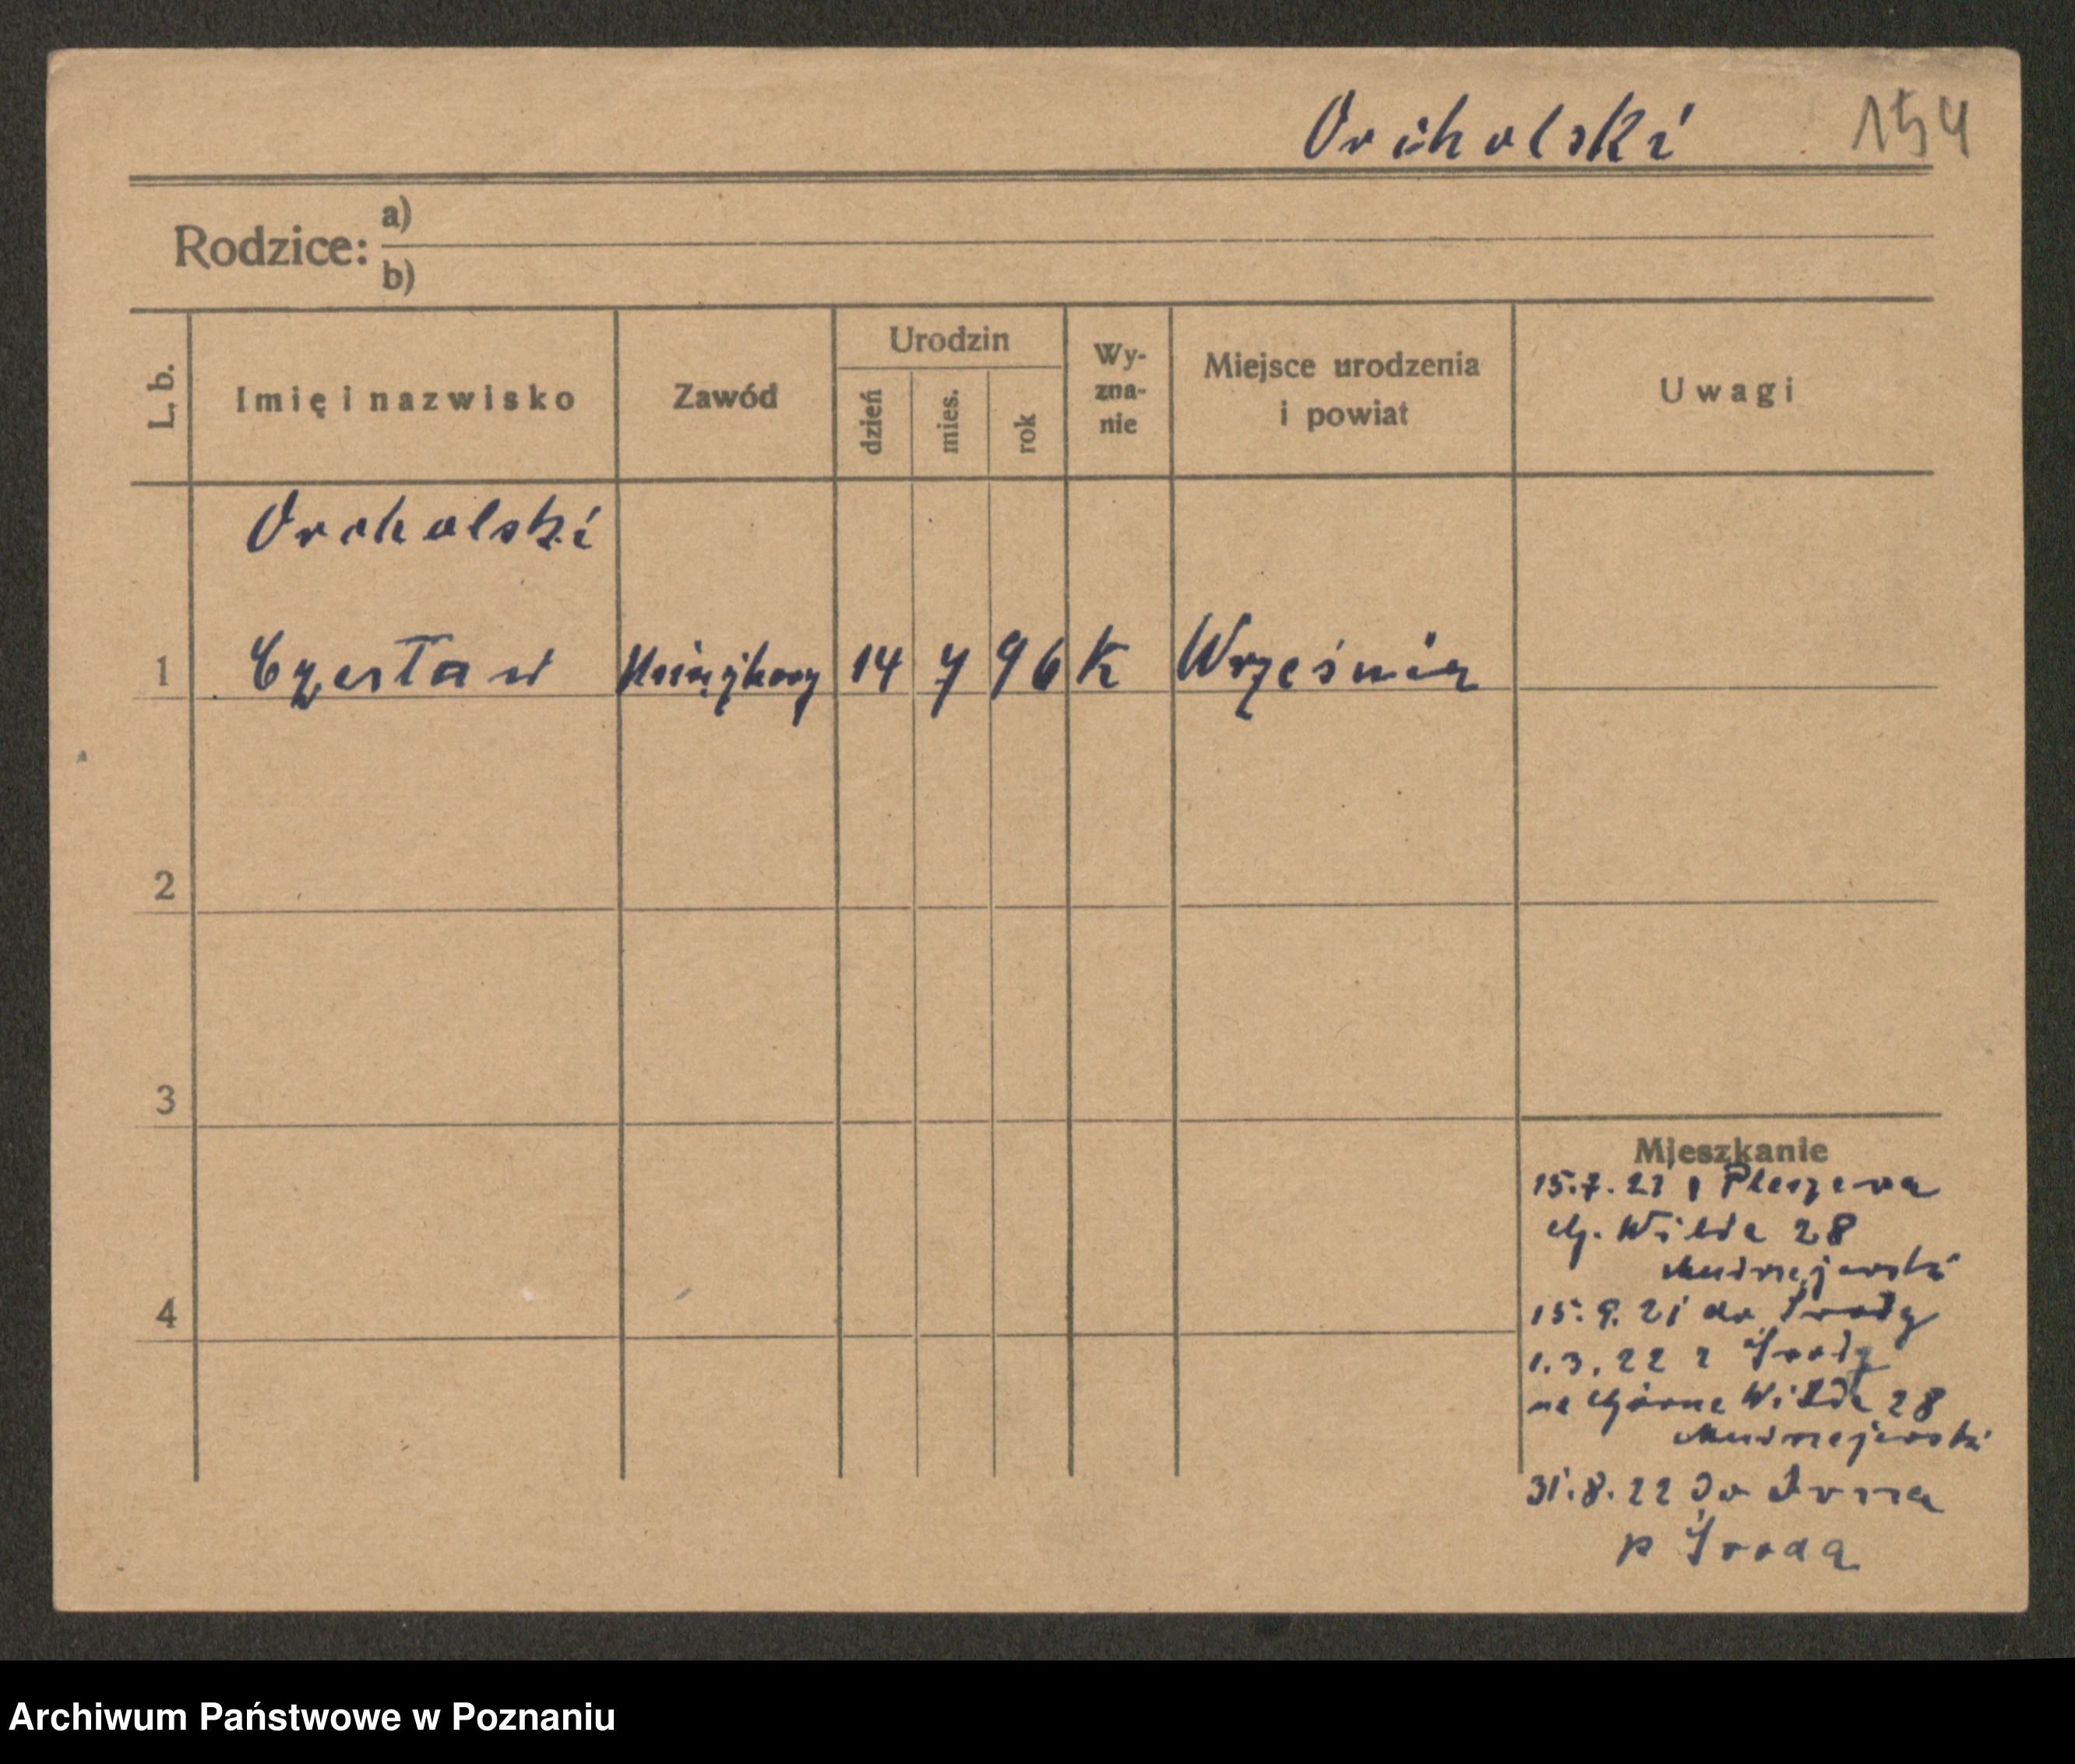 Orcholski 154
Rodzice: a)
b)
L. b.
Imię i nazwisko
Zawód
Urodzin
dzień
mies.
rok
Wy-
zna-
nie
Miejsce urodzenia
i powiat
Uwagi
Orcholski
1 Czesław Książkowy 14 7 96 K Września
2
3
4
Mieszkanie
15.7.21 z Pleszewa
G. Wilda 28
15.9.21 do Środy
1.3.22 z Środy
na Górne Wilda 28
31.8.22 do
p Środa
Archiwum Państwowe w Poznaniu